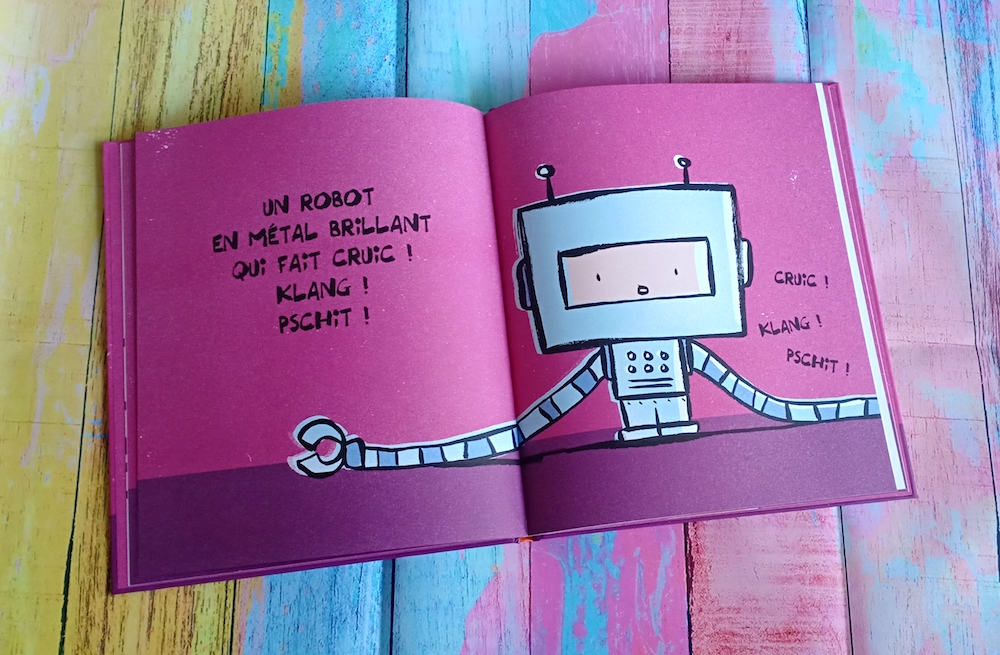 UN ROBOT
EN MÉTAL BRiLLANT
QUi FAiT CRUiC !
KLANG !
PSCHiT !
CRUiC !
KLANG !
PSCHiT !